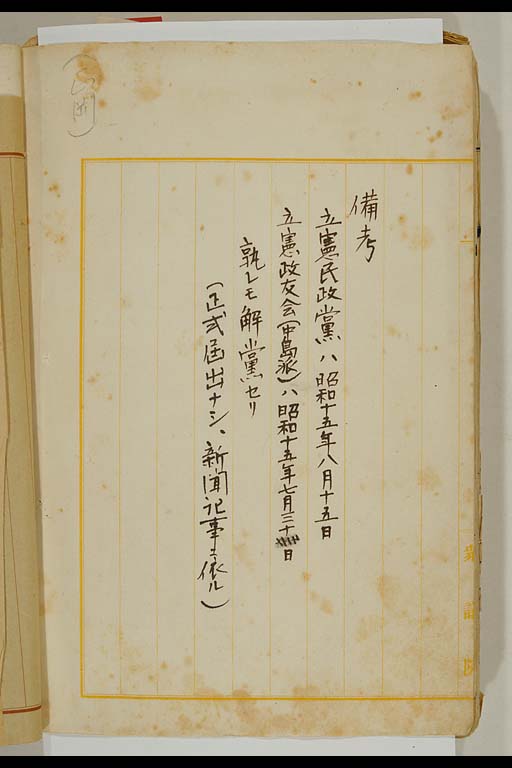 備考
立憲民政黨ハ昭和十五年八月十五日
立憲政友会(中島派)ハ昭和十五年七月三十日
孰レモ解黨セリ
(正式届出ナシ、新聞記事ニ依ル)